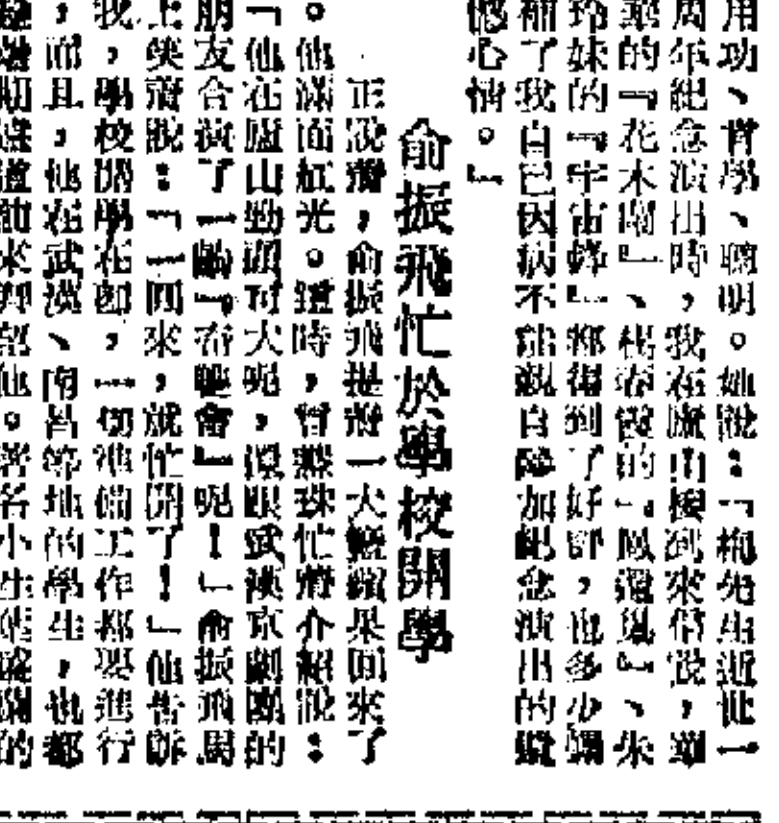 用功、肯學、聰明。她說：「梅先生逝世一
周年紀念演出時，我在廬山接到來信說，單
的『花木蘭』、楊春霞的『鳳還巢』、朱
玲妹的『宇宙鋒』都得到了好評，也多少
補了我自己因病不能親自參加紀念演出的
憾心情。』
俞振飛忙於學校開學
正說着，俞振飛提着一大簍鮮果回來了
。他滿面紅光。這時，言慧珠忙着介紹說：
「他在廬山勁頭可大呢，還跟武漢京劇團的
朋友合演了一齣『奇雙會』呢！」俞振飛馬
上笑着說：「一回來，就忙開了！」他告訴
我，學校開學在即，一切準備工作都要進行
，而且，他在武漢、南昌等地的學生，也都
道前來拜望他。著名小生